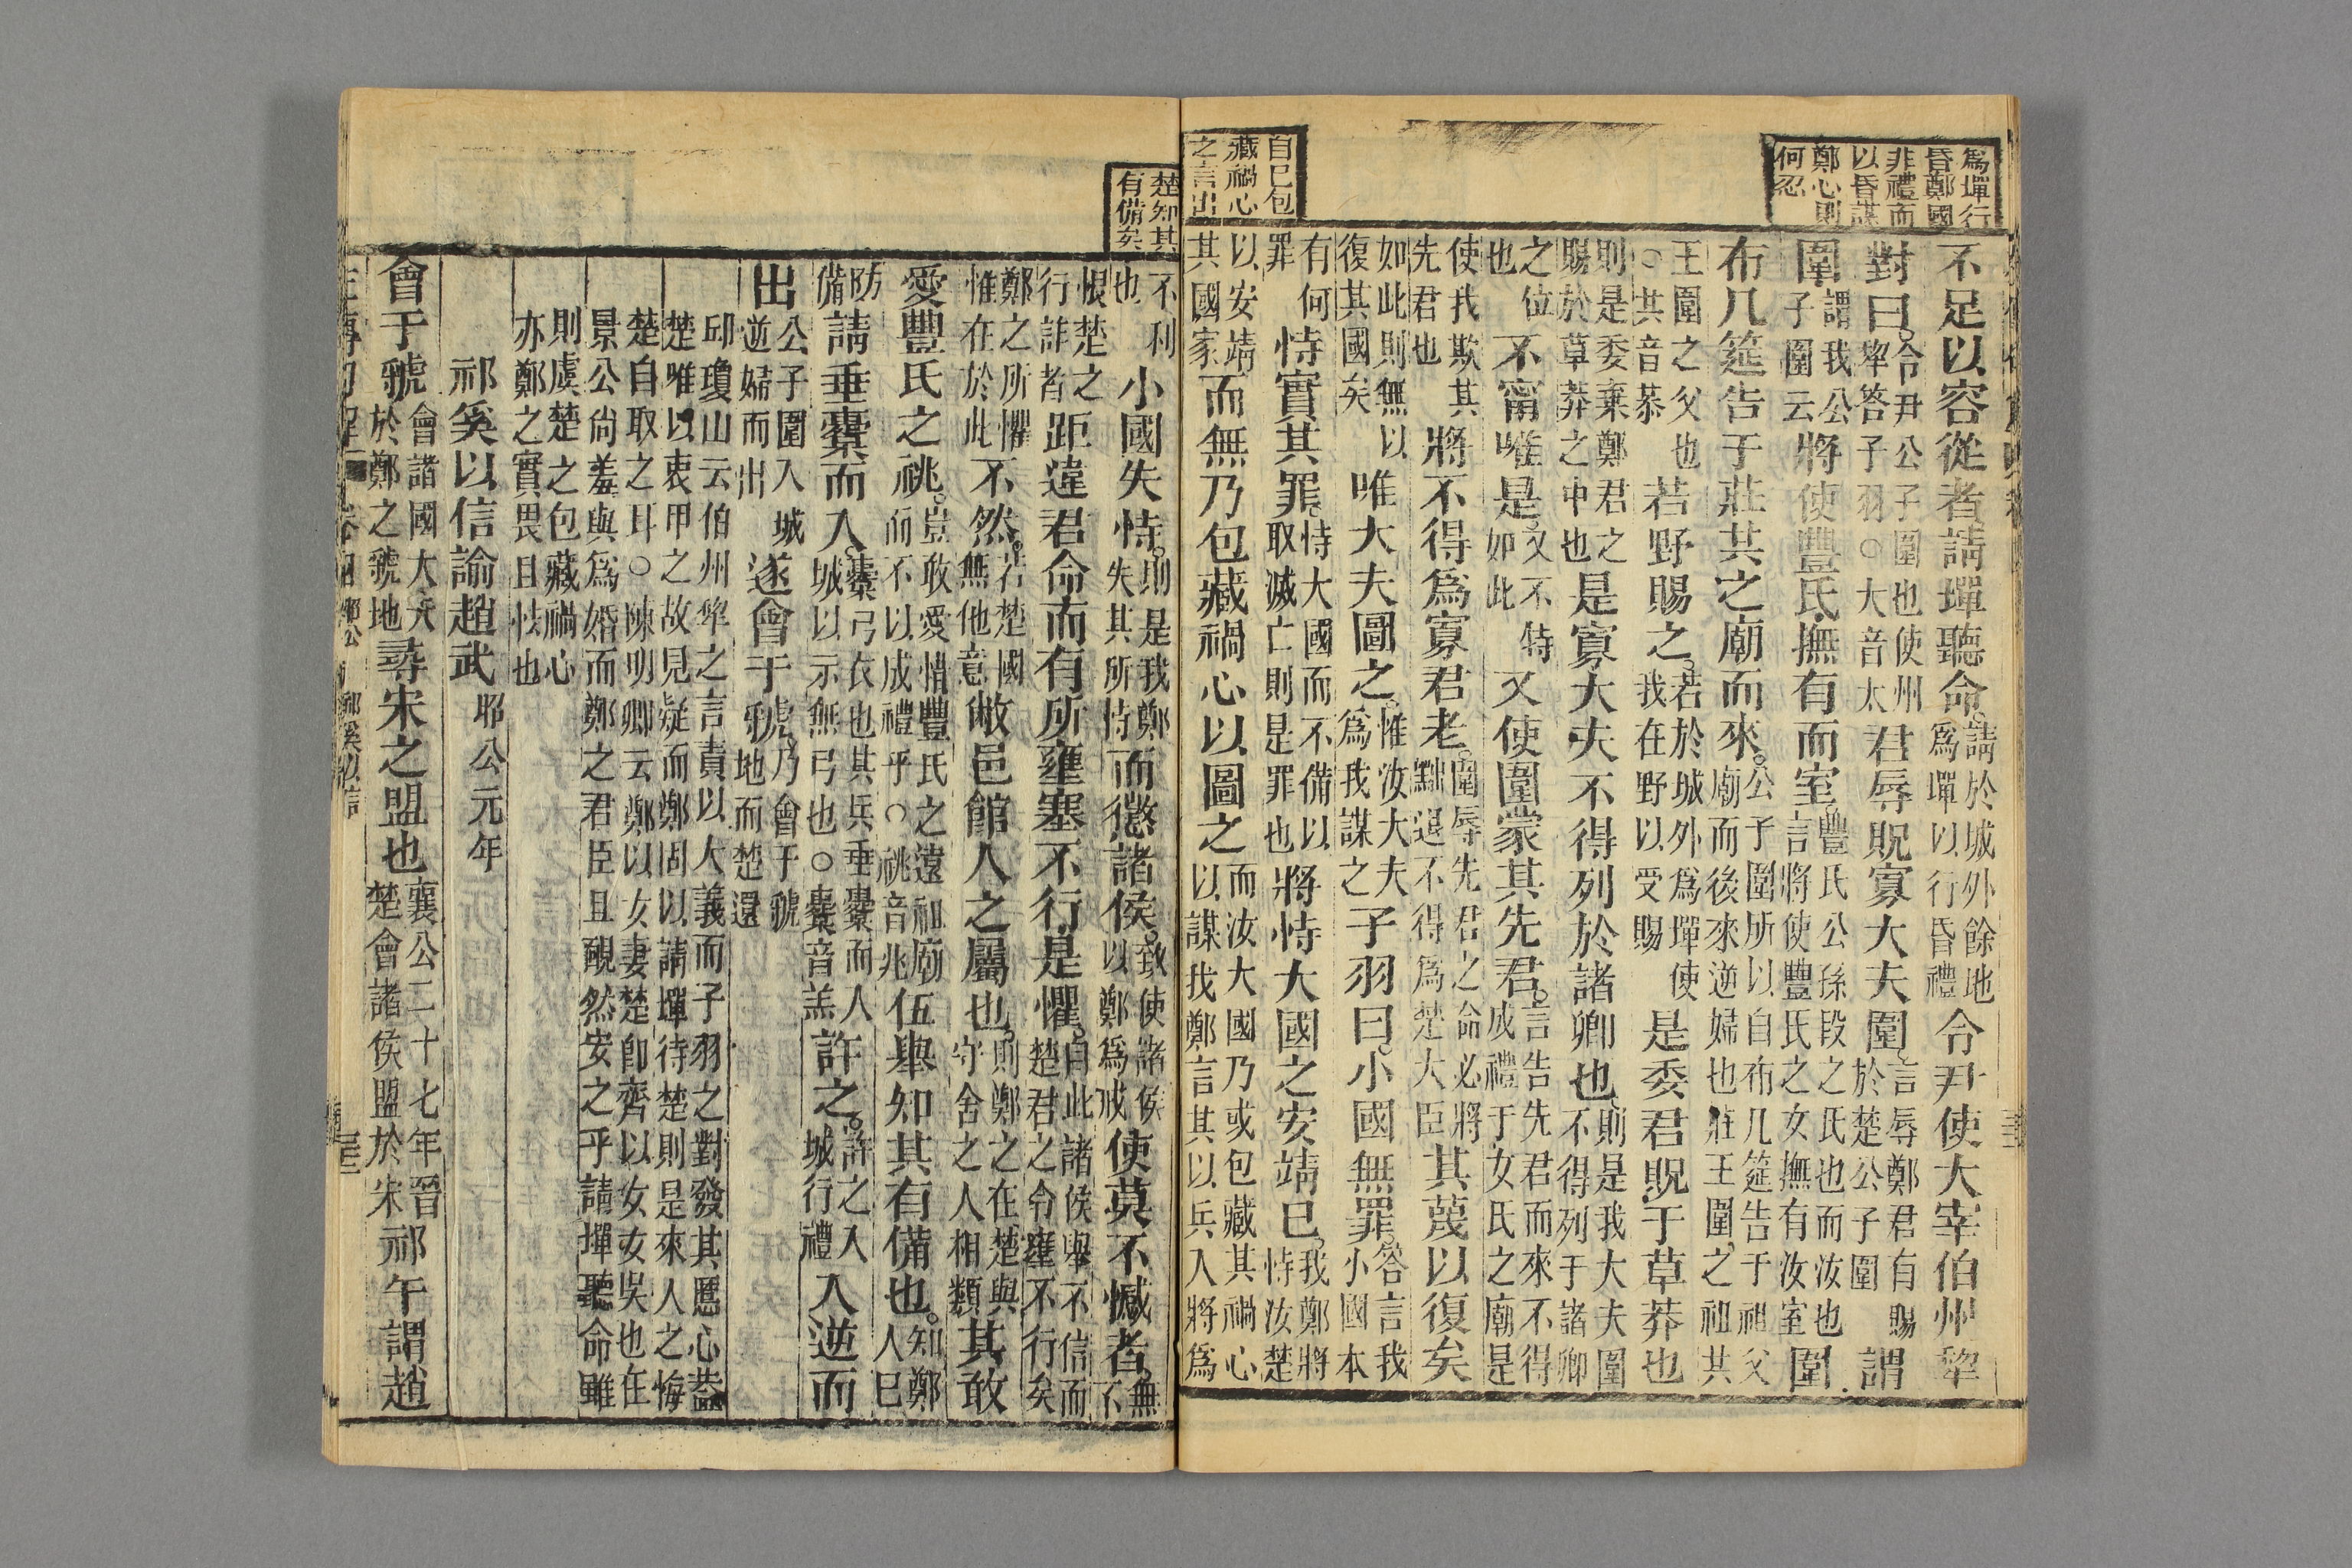 爲墠行
昏鄭國
非禮而
以昏謀
鄭心則
何忍
自已包
藏禍心
之言出
不足以容從者請墠聽命請於城外餘地爲墠以行昏禮令尹使大宰伯州犂
對曰令尹公子圍也使州犂答子羽○大音太君辱貺寡大夫圍言辱鄭君有賜於楚公子圍謂
圍謂我公子圍云將使豐氏撫有而室豐氏公孫段之氏也而汝也言將使豐氏之女撫有汝室圍
布几筵告于莊共之廟而來公子圍所以自布几筵告于祖父廟而後來逆婦也莊王圍之祖共
王圍之父也○共音恭若野賜之若於城外爲墠使我在野以受賜是委君貺于草莽也
則是委棄鄭君之賜於草莽之中也是寡大夫不得列於諸卿也則是我大夫圍不得列于諸卿
之位也不甯唯是又不特如此又使圍蒙其先君言告先君而來不得成禮于女氏之廟是
使我欺其先君也將不得爲寡君老圍辱先君之命必將黜退不得爲楚大臣其蔑以復矣
如此則無以復其國矣唯大夫圖之惟汝大夫爲我謀之子羽曰小國無罪答言我小國本
有何罪恃實其罪恃大國而不備以取滅亡則是罪也將恃大國之安靖已我鄭將恃汝楚
以安靖其國家而無乃包藏禍心以圖之而汝大國乃或包藏其禍心以謀我鄭言其以兵入將爲
楚知其
有備矣
不利也小國失恃則是我鄭失其所恃而懲諸侯致使諸侯以鄭爲戒使莫不憾者無不
恨楚之行詐者距違君命而有所壅塞不行是懼自此諸侯舉不信而楚君之令壅不行矣
鄭之所懼惟在於此不然若楚國無他意敝邑館人之屬也則鄭之在楚與守舍之人相類其敢
愛豐氏之祧豈敢愛惜豐氏之遠祖廟而不以成禮乎○祧音兆伍舉知其有備也知鄭人已
防備請垂櫜而入櫜弓衣也其兵垂櫜而入城以示無弓也○櫜音羔許之許之入城行禮入逆而
出公子圍入城逆婦而出遂會于虢乃會于虢地而楚還
邱瓊山云伯州犂之言責以大義而子羽之對發其慝心蓋
楚唯以衷甲之故見疑而鄭固以請墠待楚則是來人之侮
楚自取之耳○陳明卿云鄭以女妻楚卽齊以女女吳也在
景公尙羞與爲婚而鄭之君臣且靦然安之乎請墠聽命雖
則虞楚之包藏禍心
亦鄭之實畏且怯也
祁奚以信諭趙武 昭公元年
會于虢會諸國大夫於鄭之虢地尋宋之盟也襄公二十七年晉楚會諸侯盟於宋祁午謂趙